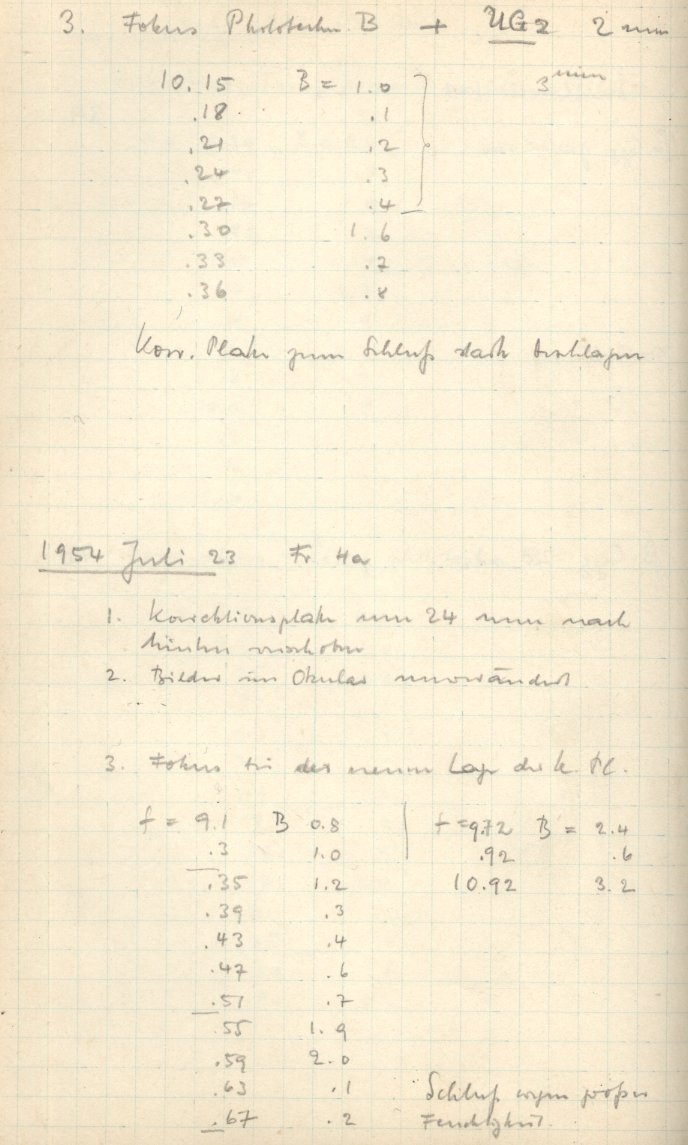 3. Fokus Phototechn. B + UG2 2 mm
10.15 B = 1.0 3 min
.18 .1
.21 .2
.24 .3
.27 .4
.30 1.6
.33 .7
.36 .8
Korr. Platte zum Schluß stark beschlagen
1954 Juli 23 Fr Ha
1. Korrektionsplatte um 24 mm nach
hinten verschoben
2. Bilder im Okular unverändert
3. Fokus bei der neuen Lage der K. Pl.
f = 9.1 B 0.8
.3 1.0
.35 1.2
.39 .3
.43 .4
.47 .6
.51 .7
.55 1.9
.59 2.0
.63 .1
.67 .2
f = 9.72 B = 2.4
.92 .6
10.92 3.2
Schluß wegen großer
Feuchtigkeit.